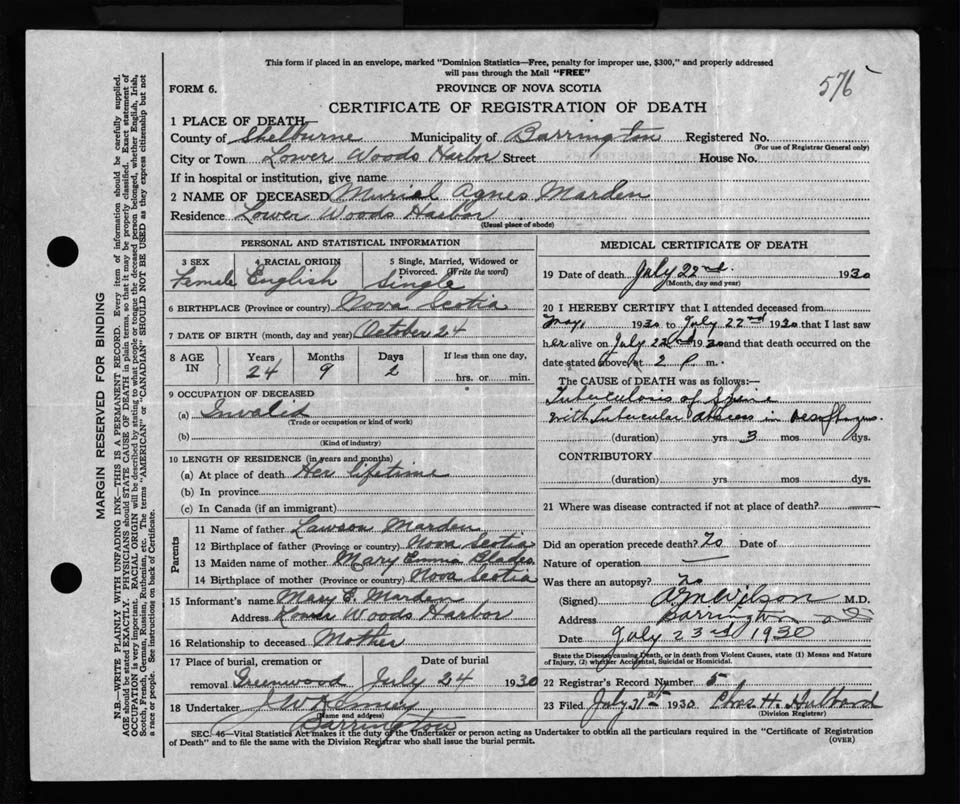 This form if placed in an envelope, marked "Dominion Statistics—Free, penalty for improper use, $300," and properly addressed
will pass through the Mail "FREE"
576
FORM 6.
PROVINCE OF NOVA SCOTIA
CERTIFICATE OF REGISTRATION OF DEATH
1 PLACE OF DEATH
County of Shelburne Municipality of Barrington Registered No.
(For use of Registrar General only)
City or Town Lower Woods Harbor Street House No.
If in hospital or institution, give name
2 NAME OF DECEASED Murial Agnes Marden
Residence Lower Woods Harbor
(Usual place of abode)
PERSONAL AND STATISTICAL INFORMATION
3 SEX 4 RACIAL ORIGIN 5 Single, Married, Widowed or
Divorced. (Write the word)
Female English Single
6 BIRTHPLACE (Province or country) Nova Scotia
7 DATE OF BIRTH (month, day and year) October 24
8 AGE IN Years Months Days If less than one day,
24 9 2 hrs. or min.
9 OCCUPATION OF DECEASED
(a) Invalid
(Trade or occupation or kind of work)
(b)
(Kind of industry)
10 LENGTH OF RESIDENCE (in years and months)
(a) At place of death Her lifetime
(b) In province
(c) In Canada (if an immigrant)
Parents
11 Name of father Lawson Marden
12 Birthplace of father (Province or country) Nova Scotia
13 Maiden name of mother Mary Emma Blades
14 Birthplace of mother (Province or country) Nova Scotia
15 Informant's name Mary E. Marden
Address Lower Woods Harbor
16 Relationship to deceased Mother
17 Place of burial, cremation or Date of burial
removal Greenwood July 24 1930
18 Undertaker J. W. Kenney
(Name and address)
Barrington
MEDICAL CERTIFICATE OF DEATH
19 Date of death July 22nd. 1930
(Month, day and year)
20 I HEREBY CERTIFY that I attended deceased from
May, 1930 to July 22nd 1930 that I last saw
her alive on July 22nd 1930 and that death occurred on the
date stated above at 2 p. m.
The CAUSE OF DEATH was as follows:—
Tuberculosis of Spine
with Tubercular Abscess in
(duration) yrs 3 mos dys.
CONTRIBUTORY
(duration) yrs. mos. dys.
21 Where was disease contracted if not at place of death?
Did an operation precede death? No Date of
Nature of operation
Was there an autopsy? No
(Signed) A M Wilson M.D.
Address Barrington
Date July 23rd 1930
State the Disease causing Death, or in death from Violent Causes, state (1) Means and Nature
of Injury, (2) whether Accidental, Suicidal or Homicidal.
22 Registrar's Record Number 5
23 Filed July 31st 1930 Chas. H.
(Division Registrar)
SEC. 46—Vital Statistics Act makes it the duty of the Undertaker or person acting as Undertaker to obtain all the particulars required in the "Certificate of Registration
of Death" and to file the same with the Division Registrar who shall issue the burial permit. (OVER)
MARGIN RESERVED FOR BINDING
N.B.—WRITE PLAINLY WITH UNFADING INK—THIS IS A PERMANENT RECORD. Every item of information should be carefully supplied.
AGE should be stated EXACTLY. PHYSICIANS should STATE CAUSE OF DEATH in plain terms, so that it may be properly classified. Exact statement of
OCCUPATION is very important. RACIAL ORIGIN will be described by stating to what people or tongue the deceased person belonged, whether English, Irish,
Scotch, French, German, Russian, Ruthenian, etc. The terms "AMERICAN" or "CANADIAN" SHOULD NOT BE USED as they express citizenship but not
a race or people. See instructions on back of Certificate.